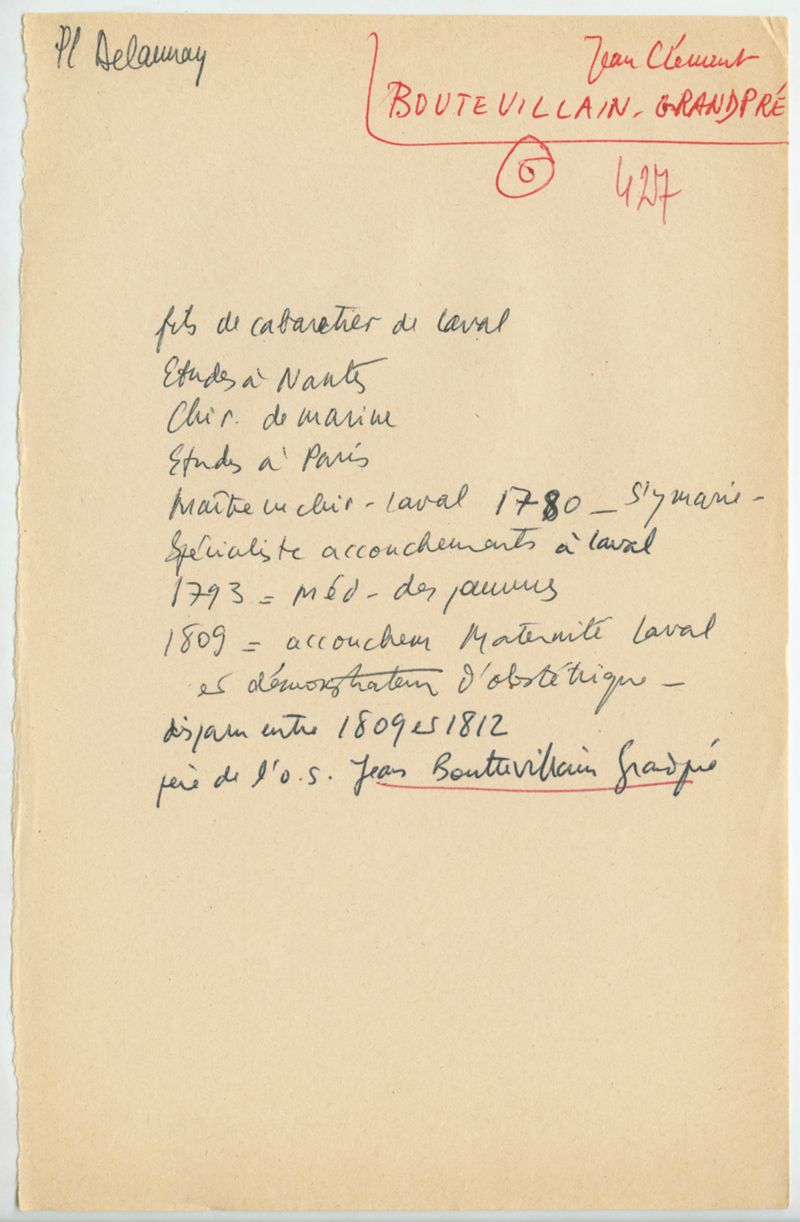 Pl Delaunay
Jean Clément
BOUTEVILLAIN-GRANDPRÉ
6
427
fils de cabaretier de Laval
Etudes à Nantes
Chir. de marine
Etudes à Paris
Maître en chir - Laval 1780 — s'y marie -
Spécialiste accouchements à Laval
1793 = méd - des pauvres
1809 = accoucheur Maternité Laval
et démonstrateur d'obstétrique —
disparu entre 1809 et 1812
père de l'o.s. Jean Bouttevillain Grandpré